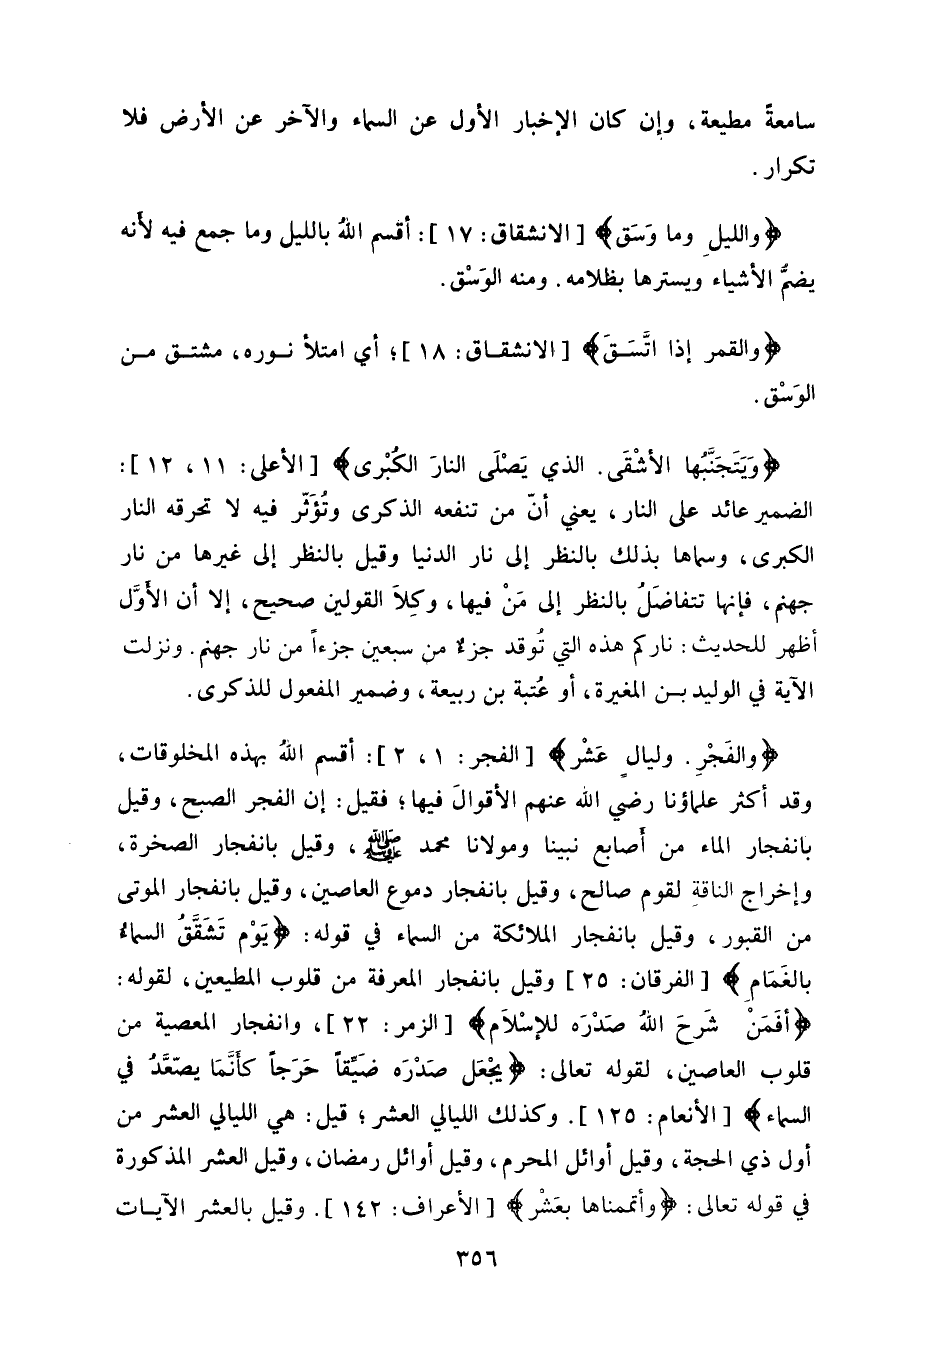 سامعةً مطيعة، وإن كان الإخبار الأول عن السماء والآخر عن الأرض فلا
تكرار.
﴿والليلِ وما وَسَق﴾ [الانشقاق: ١٧]: أقسم اللهُ بالليل وما جمع فيه لأَنه
يضمُّ الأشياء ويسترها بظلامه. ومنه الوَسْق.
﴿والقمر إذا اتَّسَـقَ﴾ [الانشقـاق: ١٨]؛ أي امتلأ نـوره، مشتـق مـن
الوَسْق.
﴿وَيَتَجَنَّبُها الأشْقَى. الذي يَصْلَى النارَ الكُبْرى﴾ [الأعلى: ١١، ١٢]:
الضمير عائد على النار، يعني أنّ من تنفعه الذكرى وتُؤَثّر فيه لا تحرقه النار
الكبرى، وسماها بذلك بالنظر إلى نار الدنيا وقيل بالنظر إلى غيرها من نار
جهنم، فإنها تتفاضَلُ بالنظر إلى مَنْ فيها، وكِلاَ القولين صحيح، إلا أن الأَوَّل
أظهر للحديث: ناركم هذه التي تُوقد جزءٌ من سبعين جزءاً من نار جهنم. ونزلت
الآية في الوليد بـن المغيرة، أو عُتبة بن ربيعة، وضمير المفعول للذكرى.
﴿والفَجْرِ. وليالٍ عَشْر﴾ [الفجر: ١، ٢]: أقسم اللهُ بهذه المخلوقات،
وقد أكثر علماؤنا رضي الله عنهم الأقوالَ فيها؛ فقيل: إن الفجر الصبح، وقيل
بانفجار الماء من أَصابع نبينا ومولانا محمد ﷺ، وقيل بانفجار الصخرة،
وإخراج الناقةِ لقوم صالح، وقيل بانفجار دموع العاصين، وقيل بانفجار الموتى
من القبور، وقيل بانفجار الملائكة من السماء في قوله: ﴿يَوْم تَشَقَّقُ السماءُ
بالغَمَامِ﴾ [الفرقان: ٢٥] وقيل بانفجار المعرفة من قلوب المطيعين، لقوله:
﴿أفَمَنْ شَرحَ اللهُ صَدْرَه للإسْلاَم﴾ [الزمر: ٢٢]، وانفجار المعصية من
قلوب العاصين، لقوله تعالى: ﴿يَجْعَل صَدْرَه ضَيِّقاً حَرَجاً كأنَّمَا يصّعَّدُ في
السماء﴾ [الأنعام: ١٢٥]. وكذلك الليالي العشر؛ قيل: هي الليالي العشر من
أول ذي الحجة، وقيل أوائل المحرم، وقيل أوائل رمضان، وقيل العشر المذكورة
في قوله تعالى: ﴿وأتممناها بعَشْر﴾ [الأعراف: ١٤٢]. وقيل بالعشر الآيـات
٣٥٦